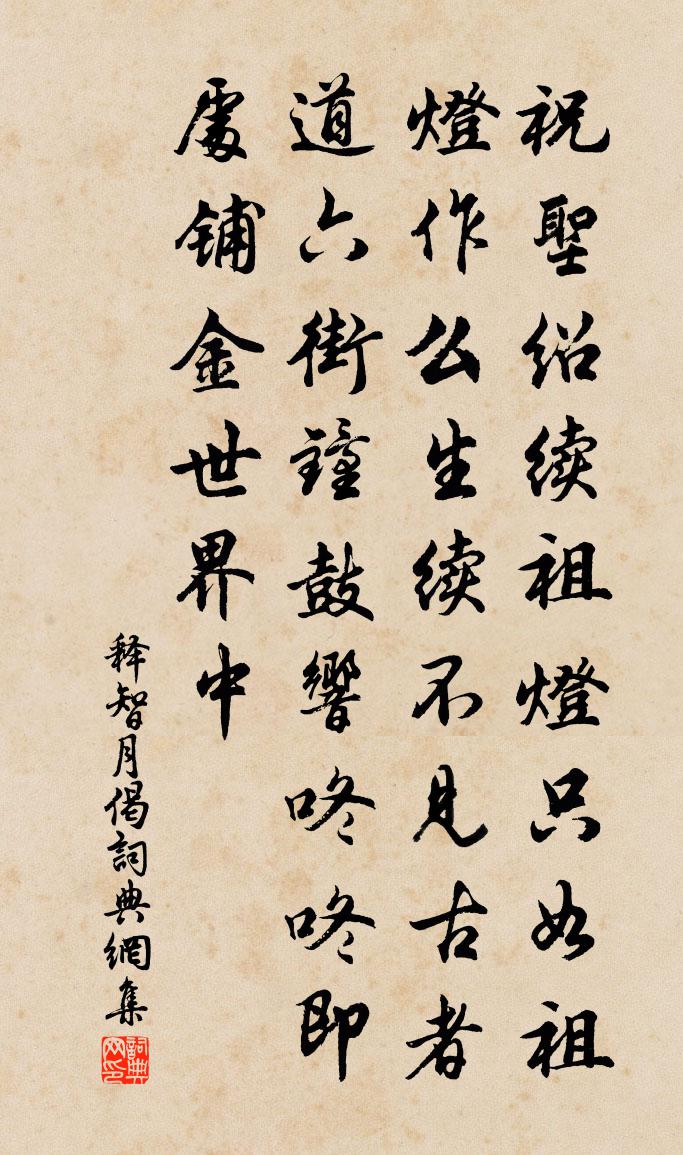 祝聖紹续祖燈只如祖
燈作么生续不見古者
道六街鐘鼓響咚咚即
處铺金世界中
释智月偈詞典網集
詞典网印